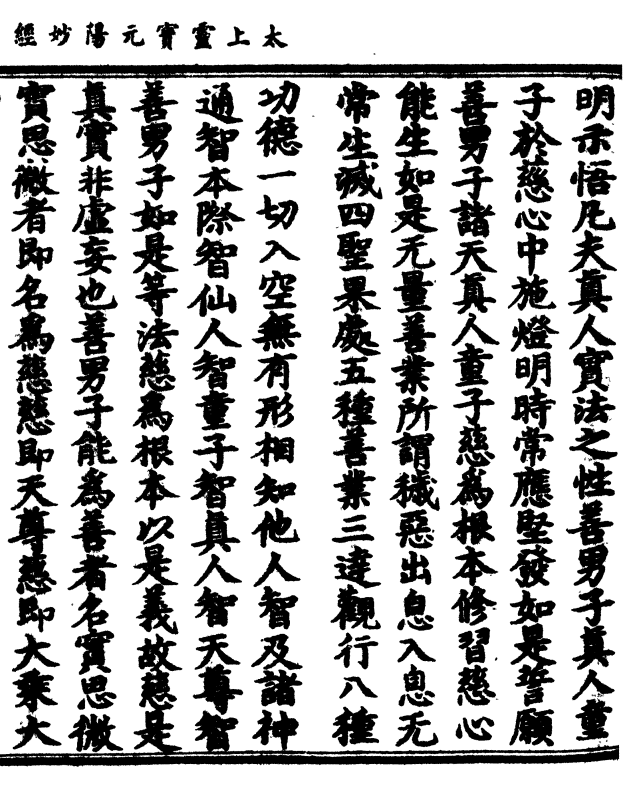 太上靈寶元陽妙經
明示悟凡夫真人實法之性善男子真人童
子於慈心中施燈明時常應堅發如是誓願
善男子諸天真人童子慈為根本修習慈心
能生如是无量善業所謂穢惡出息入息无
常生滅四聖果處五種善業三達觀行八種
功德一切入空無有形相知他人智及諸神
通智本際智仙人智童子智真人智天尊智
善男子如是等法慈為根本以是義故慈是
真實非虛妄也善男子能為善者名實思微
實思微者即名為慈慈即天尊慈即大乘大